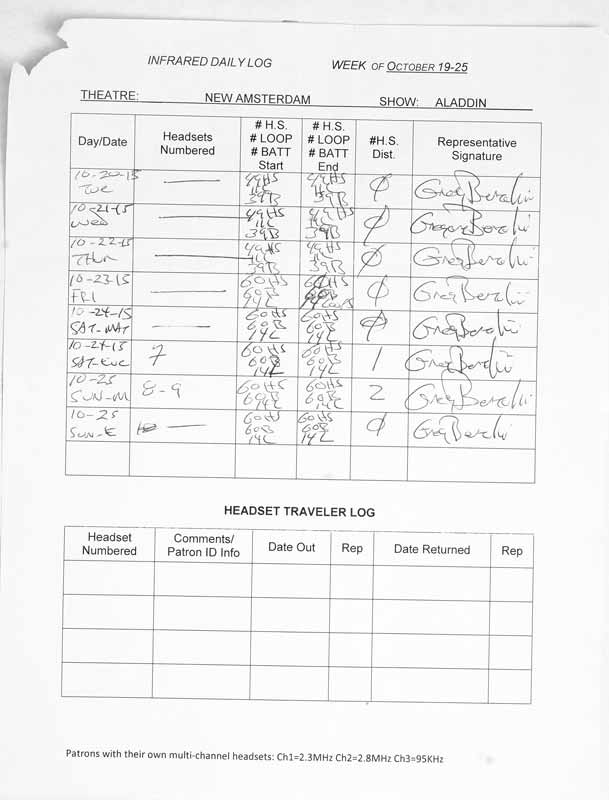 INFRARED DAILY LOG WEEK OF OCTOBER 19-25
THEATRE: NEW AMSTERDAM SHOW: ALADDIN
Day/Date
Headsets
Numbered
# H.S.
# LOOP
# BATT
Start
# H.S.
# LOOP
# BATT
End
#H.S.
Dist.
Representative
Signature
10-20-15
TUE
49HS
39B
49HS
39B
Ø
10-21-15
WED
49HS
39B
49HS
39B
Ø
10-22-15
THUR
49HS
39B
49HS
39B
Ø
10-23-15
FRI
60HS
60B
14L
Ø
10-24-15
SAT-MAT
60HS
60B
14L
60HS
60B
14L
Ø
10-24-15
SAT-EVE
7
60HS
60B
14L
60HS
60B
14L
1
10-25
SUN-M
8-9
60HS
60B
14L
60HS
60B
14L
2
10-25
SUN-E
60HS
60B
14L
60HS
60B
14L
Ø
HEADSET TRAVELER LOG
Headset
Numbered
Comments/
Patron ID Info
Date Out
Rep
Date Returned
Rep
Patrons with their own multi-channel headsets: Ch1=2.3MHz Ch2=2.8MHz Ch3=95KHz